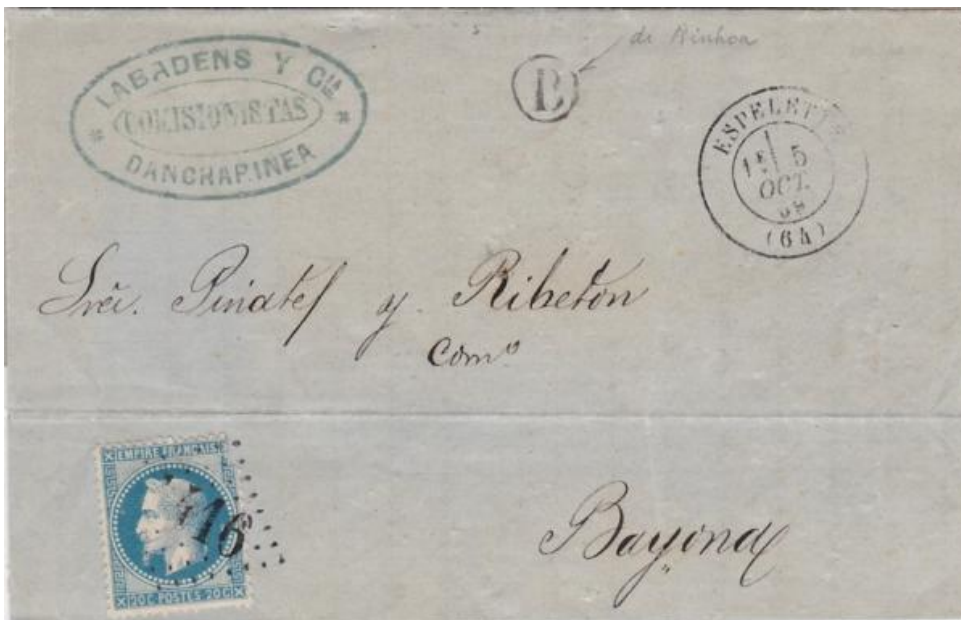 LABADENS Y CIA
COMISIONISTAS
DANCHARINEA
B
de Ainhoa
ESPELETTE
1E 5
OCT.
68
(64)
y Ribeton
Como
EMPIRE FRANÇAIS
20C POSTES 20C
416
Bayona